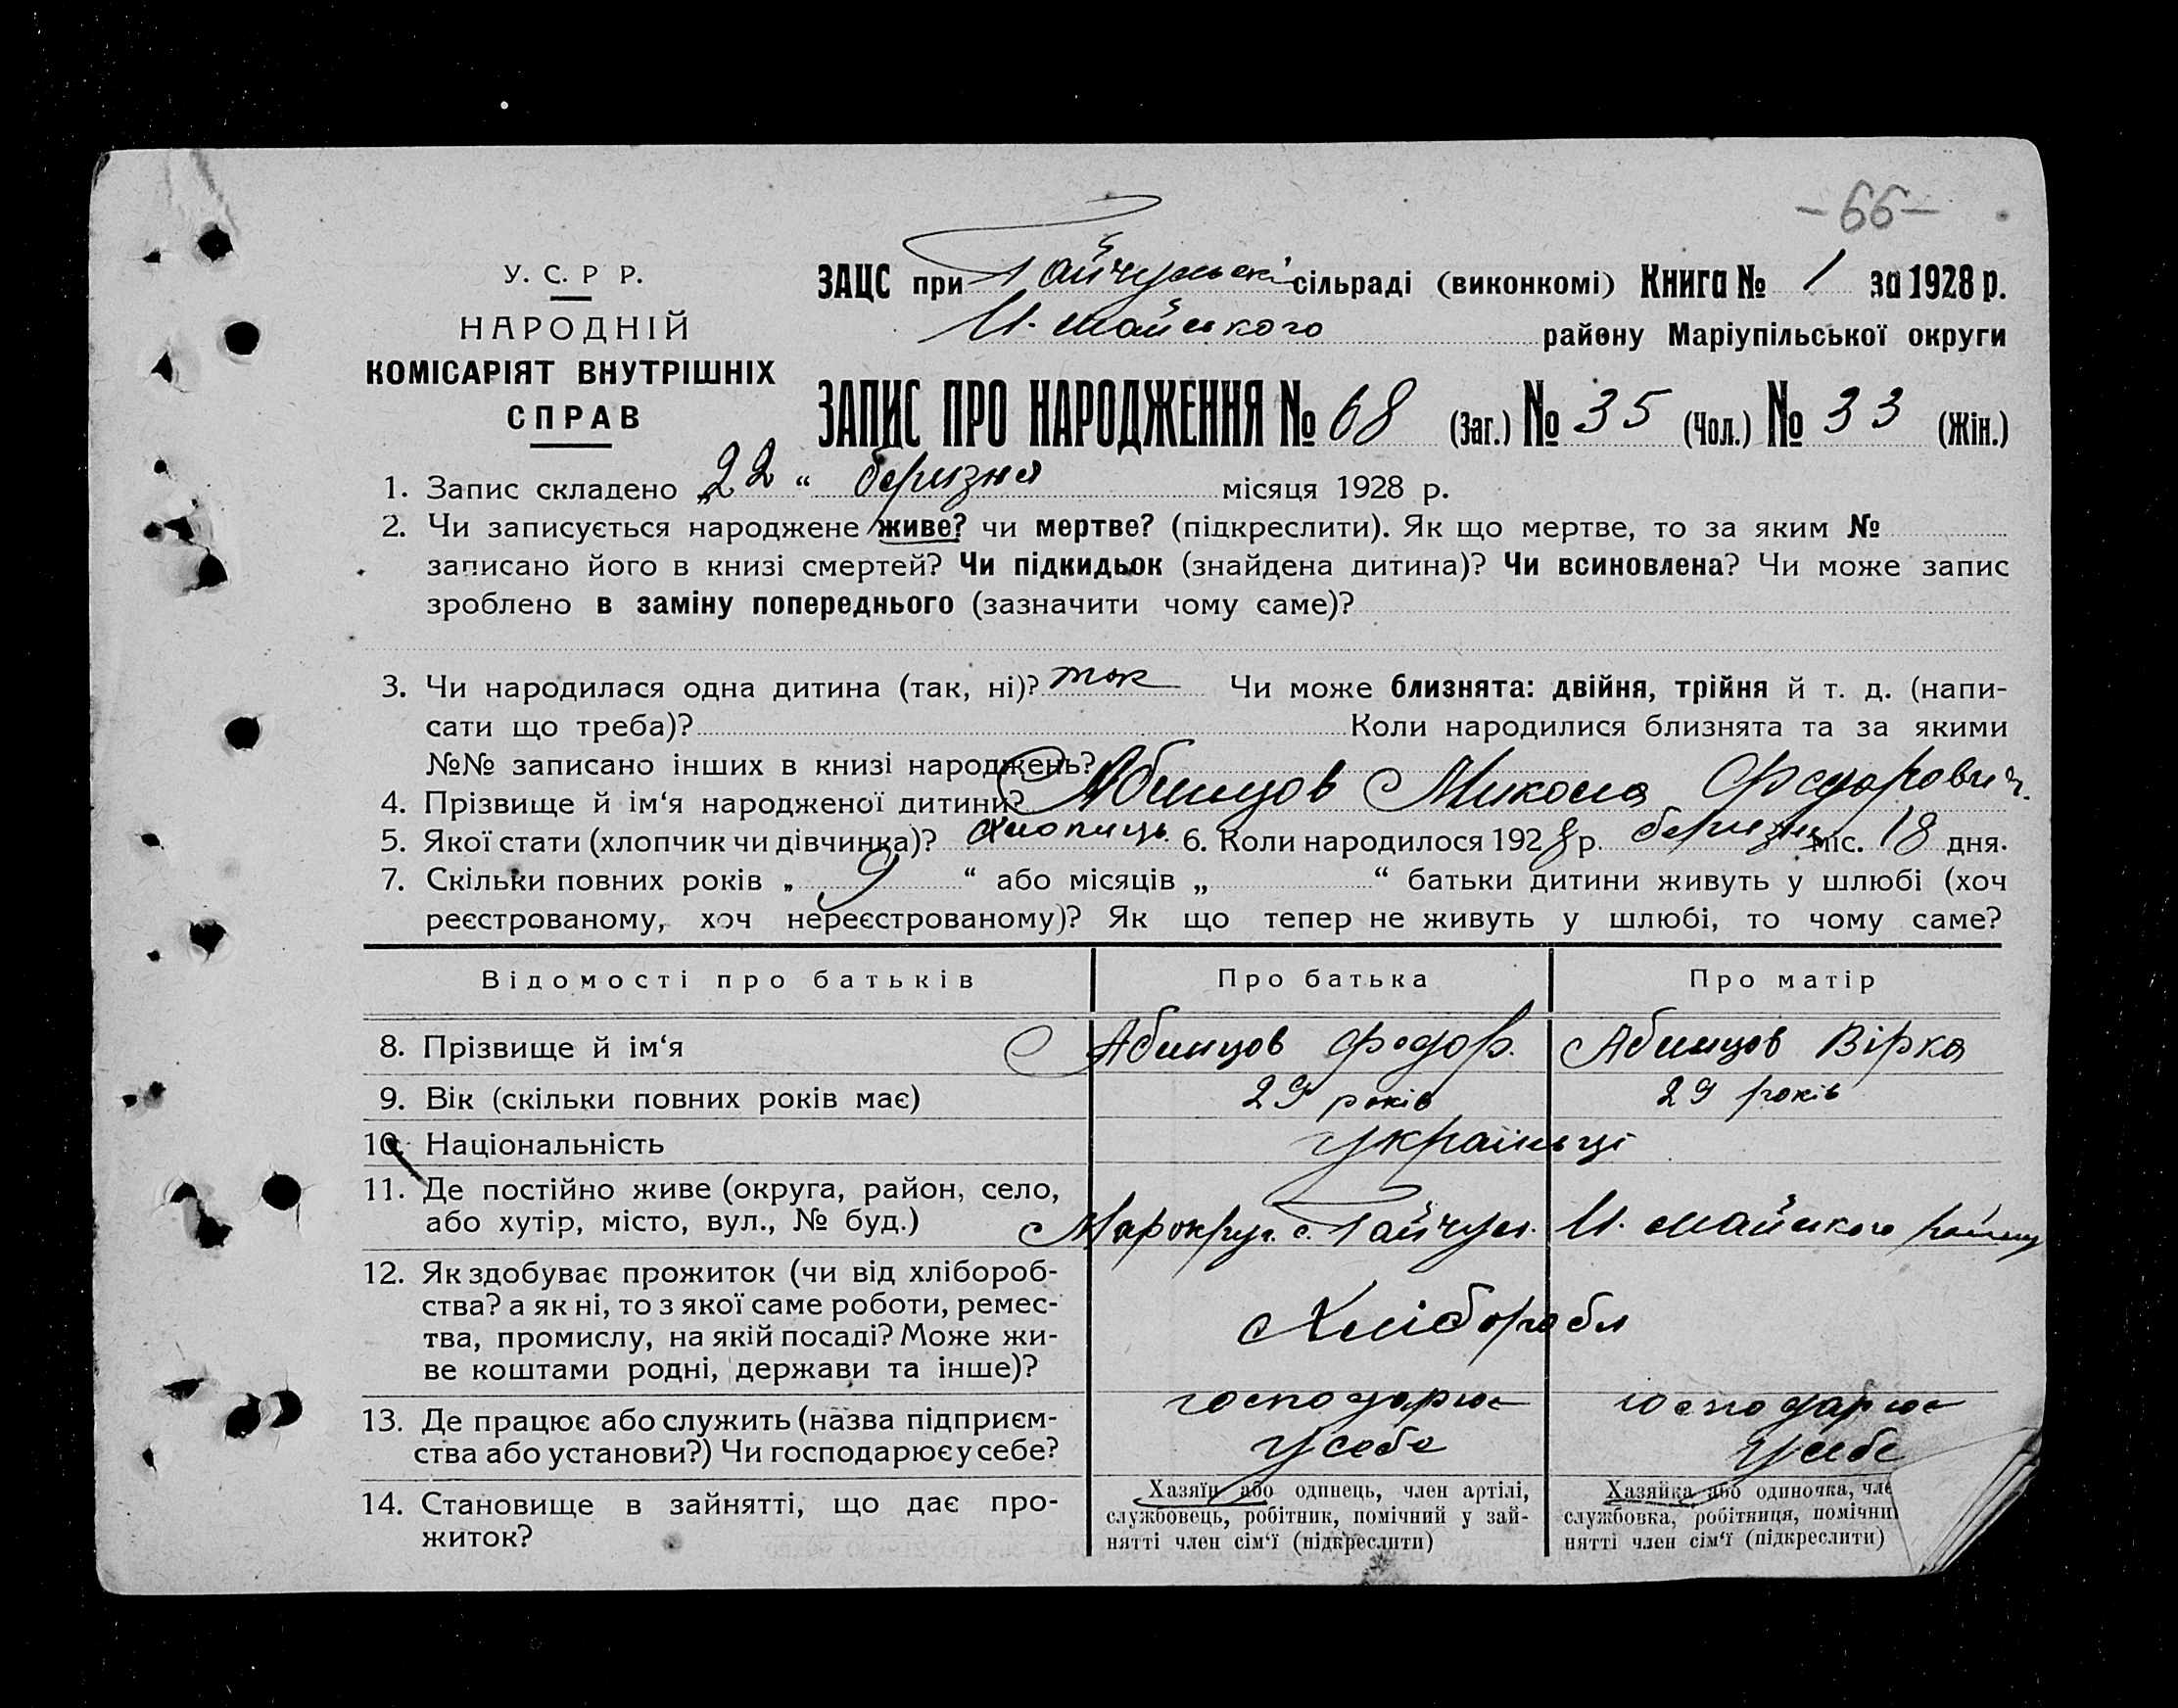 -66-
У. С. Р Р.
НАРОДНІЙ
КОМІСАРІЯТ ВНУТРІШНІХ
СПРАВ
ЗАЦС при Гайчульскі сільраді (виконкомі) Книга № 1 за 1928 р.
району Маріупільської округи
ЗАПИС ПРО НАРОДЖЕННЯ № 68 (Заг.) № 35 (Чол.) № 33 (Жін.)
1. Запис складено „22“ березня місяця 1928 р.
2. Чи записується народжене живе? чи мертве? (підкреслити). Як що мертве, то за яким №
записано його в книзі смертей? Чи підкидьок (знайдена дитина)? Чи всиновлена? Чи може запис
зроблено в заміну попереднього (зазначити чому саме)?
3. Чи народилася одна дитина (так, ні)? так Чи може близнята: двійня, трійня й т. д. (напи-
сати що треба)? Коли народилися близнята та за якими
№№ записано інших в книзі народжень?
4. Прізвище й ім‘я народженої дитини? Абинцов Микола Федорович.
5. Якої стати (хлопчик чи дівчинка)? хлопиць 6. Коли народилося 1928 р. березня міс. 18 дня.
7. Скільки повних років „ 9 “ або місяців „ “ батьки дитини живуть у шлюбі (хоч
реєстрованому, хоч нереєстрованому)? Як що тепер не живуть у шлюбі, то чому саме?
Відомості про батьків Про батька Про матір
8. Прізвище й ім‘я Абинцов Федор. Абинцов Вірка
9. Вік (скільки повних років має) 29 років 29 років
10. Національність Україньці
11. Де постійно живе (округа, район, село,
або хутір, місто, вул., № буд.) Марокруг. с. Гайчул.
12. Як здобуває прожиток (чи від хлібороб-
ства? а як ні, то з якої саме роботи, ремес-
тва, промислу, на якій посаді? Може жи-
ве коштами родні, держави та інше)?
13. Де працює або служить (назва підприєм-
ства або установи?) Чи господарює у себе?
господарює господарює
у себе у себе
14. Становище в зайнятті, що дає про-
житок?
Хазяїн або одинець, член артілі,
службовець, робітник, помічний у зай-
нятті член сім‘ї (підкреслити)
Хазяйка або одиночка, чле
службовка, робітниця, помічни
нятті член сім‘ї (підкреслити)